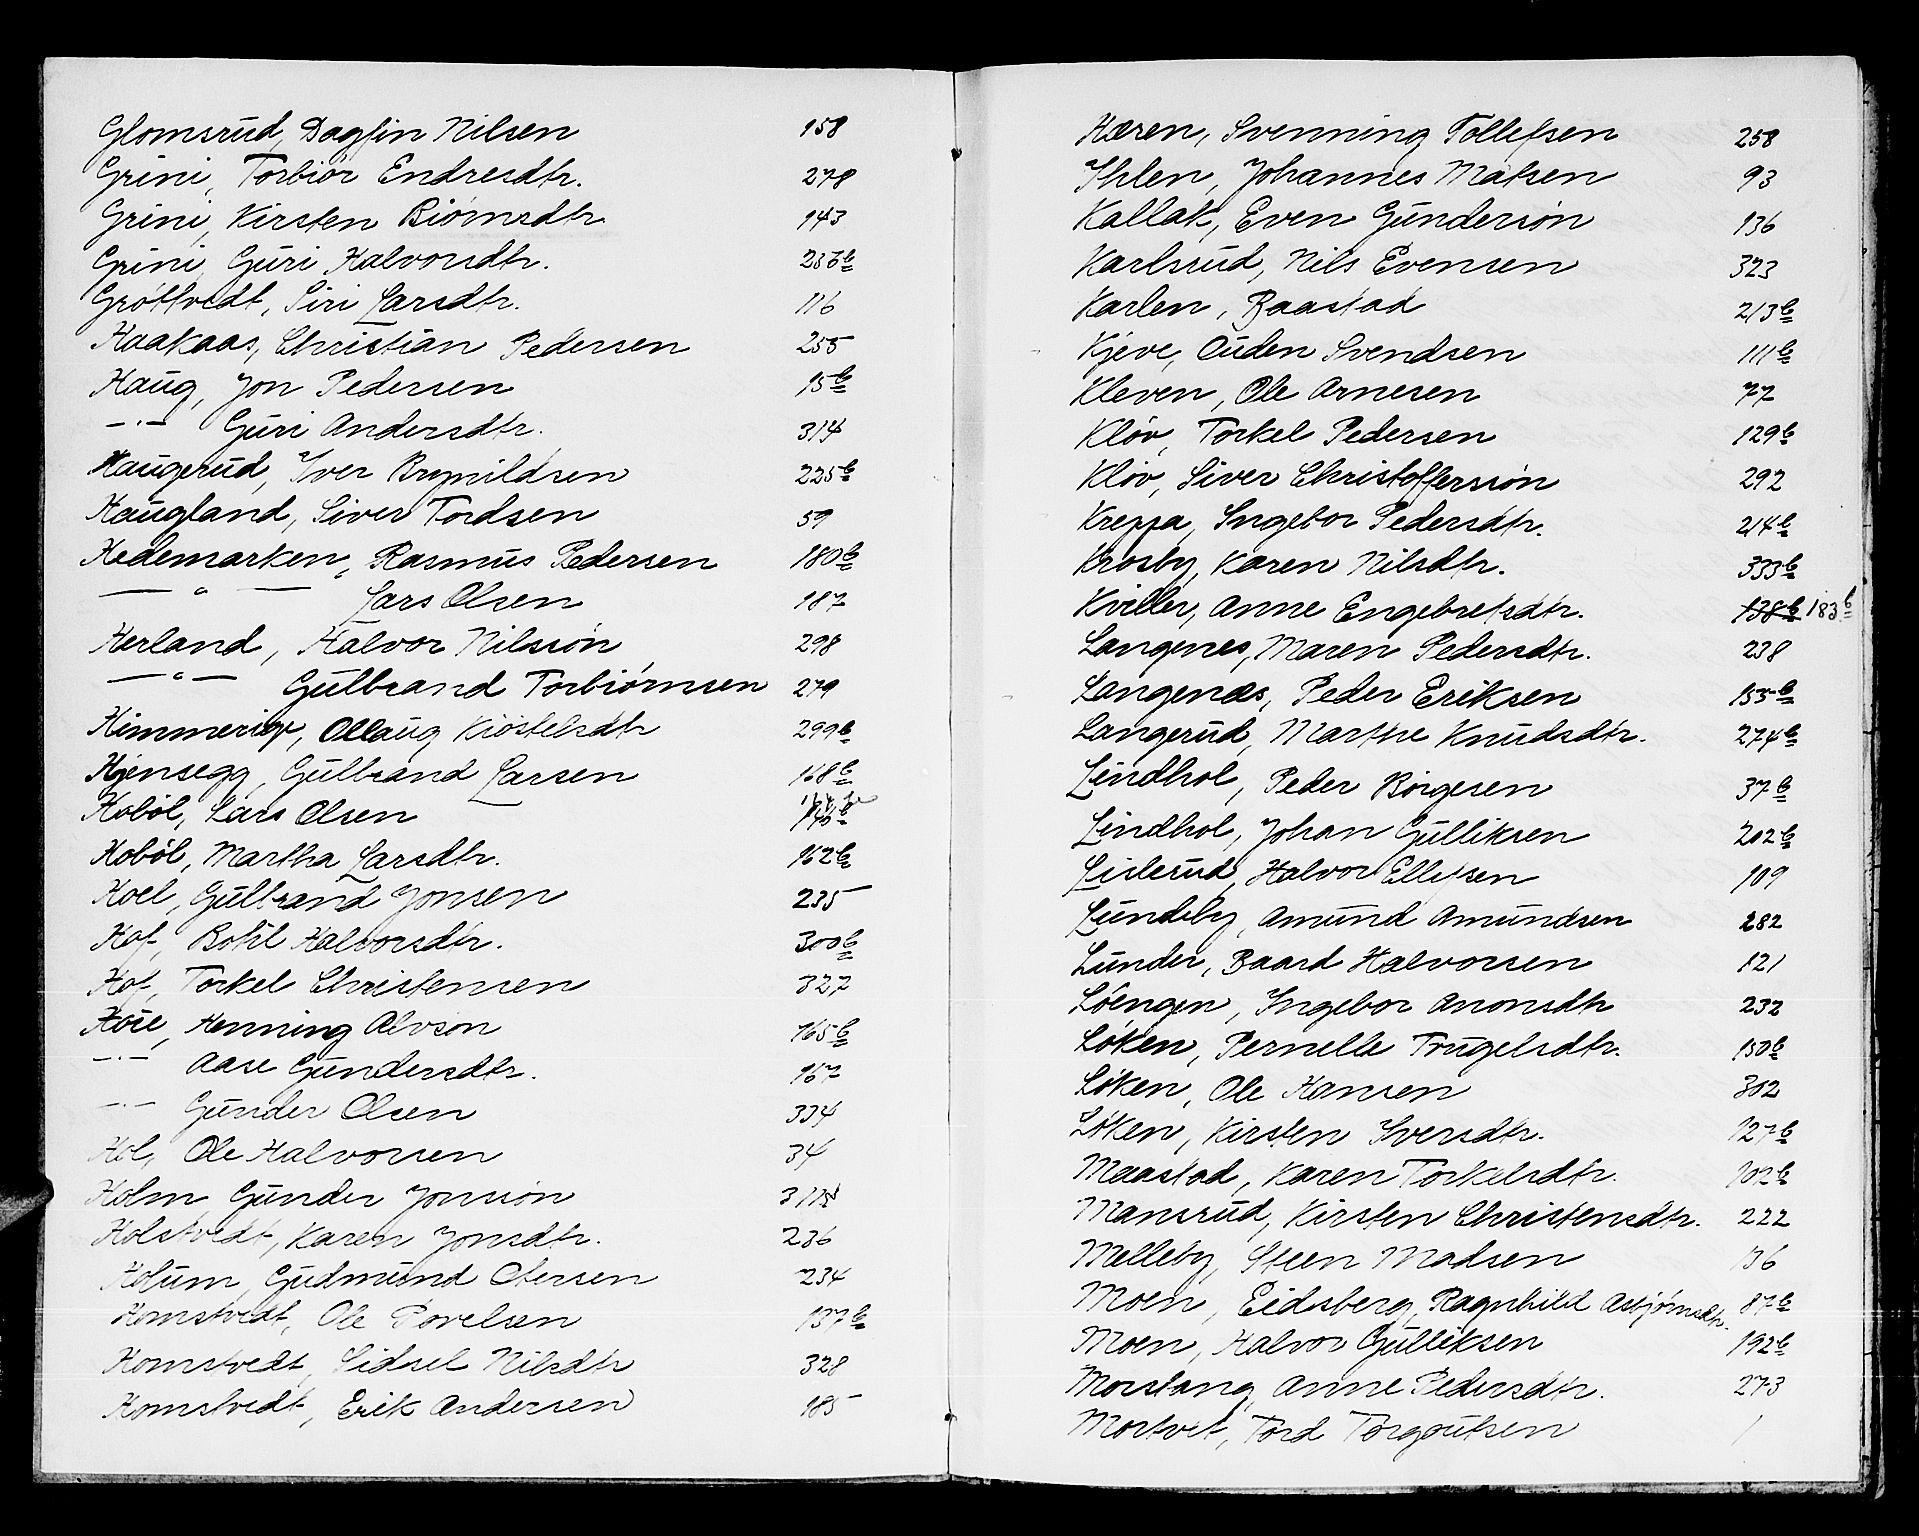 Glomsrud, Dagfin Nilsen 158
Grini, Torbiør Endresdtr. 278
Grini, Kirsten Biørnsdtr 143
Grini, Guri Halvorsdtr. 236b
Grøttvedt, Siri Larsdtr. 116
Haakaas, Christian Pedersen 255
Haug, Jon Pedersen 15b
—"— Guri Andersdtr. 314
Haugerud, Iver Brynildsen 225b
Haugland, Siver Tordsen 59
Hedemarken, Rasmus Pedersen 180b
—"— Lars Olsen 187
Herland, Halvor Nilssøn 298
—"— Gulbrand Torbiørnsen 279
Himmerig, Ollaug Kiøstelsdtr 299b
Hjensegg, Gulbrand Larsen 168b
Hobøl, Lars Olsen
Hobøl, Martha Larsdtr. 162b
Hoel, Gulbrand Jonsen 235
Hof, Botil Halvorsdtr. 300b
Hof, Torkel Christensen 327
Hoie, Henning Alvson 165b
—"— Aase Gundersdtr. 167
—"— Gunder Olsen 334
Hol, Ole Halvorsen 34
Holm Gunder Jonsiøn
Holstvedt, Karen Jonsdtr. 236
Holum, Gudmund Olersen 234
Homstvedt, Ole Povelsen 137b
Homstvedt, Sidsel Nilsdtr 328
Homstvedt, Erik Andersen 185
Hæren, Svenning Tollefsen 258
Ihlen, Johannes Matsen 93
Kallak, Even Gundersøn 136
Karlsrud, Nils Evensen 323
Karlen, Baastad 213b
Kjeve, Ouden Svendsen 111b
Kleven, Ole Arnesen 77
Kløv, Torkel Pedersen 129b
Kløv, Siver Christoffersiøn 292
Kreppa, Ingebor Pedersdtr. 214b
Krosby, Karen Nilsdtr. 333b
Kviller, Anne Engebretsdtr. 138b 183b
Langenes, Maren Pedersdtr. 238
Langenæs, Peder Eriksen 155b
Langerud, Marthe Knudsdtr. 274b
Lindhol, Peder Børgesen 37b
Lindhol, Johan Gulliksen 202b
Lislerud, Halvor Ellefsen 109
Lundeby, Amund Amundsen 282
Lunder, Baard Halvorsen 121
Løengen, Ingebor Aronsdtr 232
Løken, Pernelle Trugelsdtr. 150b
Løken, Ole Hansen 302
Løken, Kirsten Iversdtr. 127b
Maastad, Karen Torkelsdtr. 102b
Mansrud, Kirsten Christensdtr. 222
Melleby, Steen Madsen 136
Moen, Eidsberg, Ragnhild Asbjørnsdtr. 87b
Moen, Halvor Gulliksen 192b
Morstang, Anne Pedersdtr. 273
Mortvet, Tord Torgoutsen 1